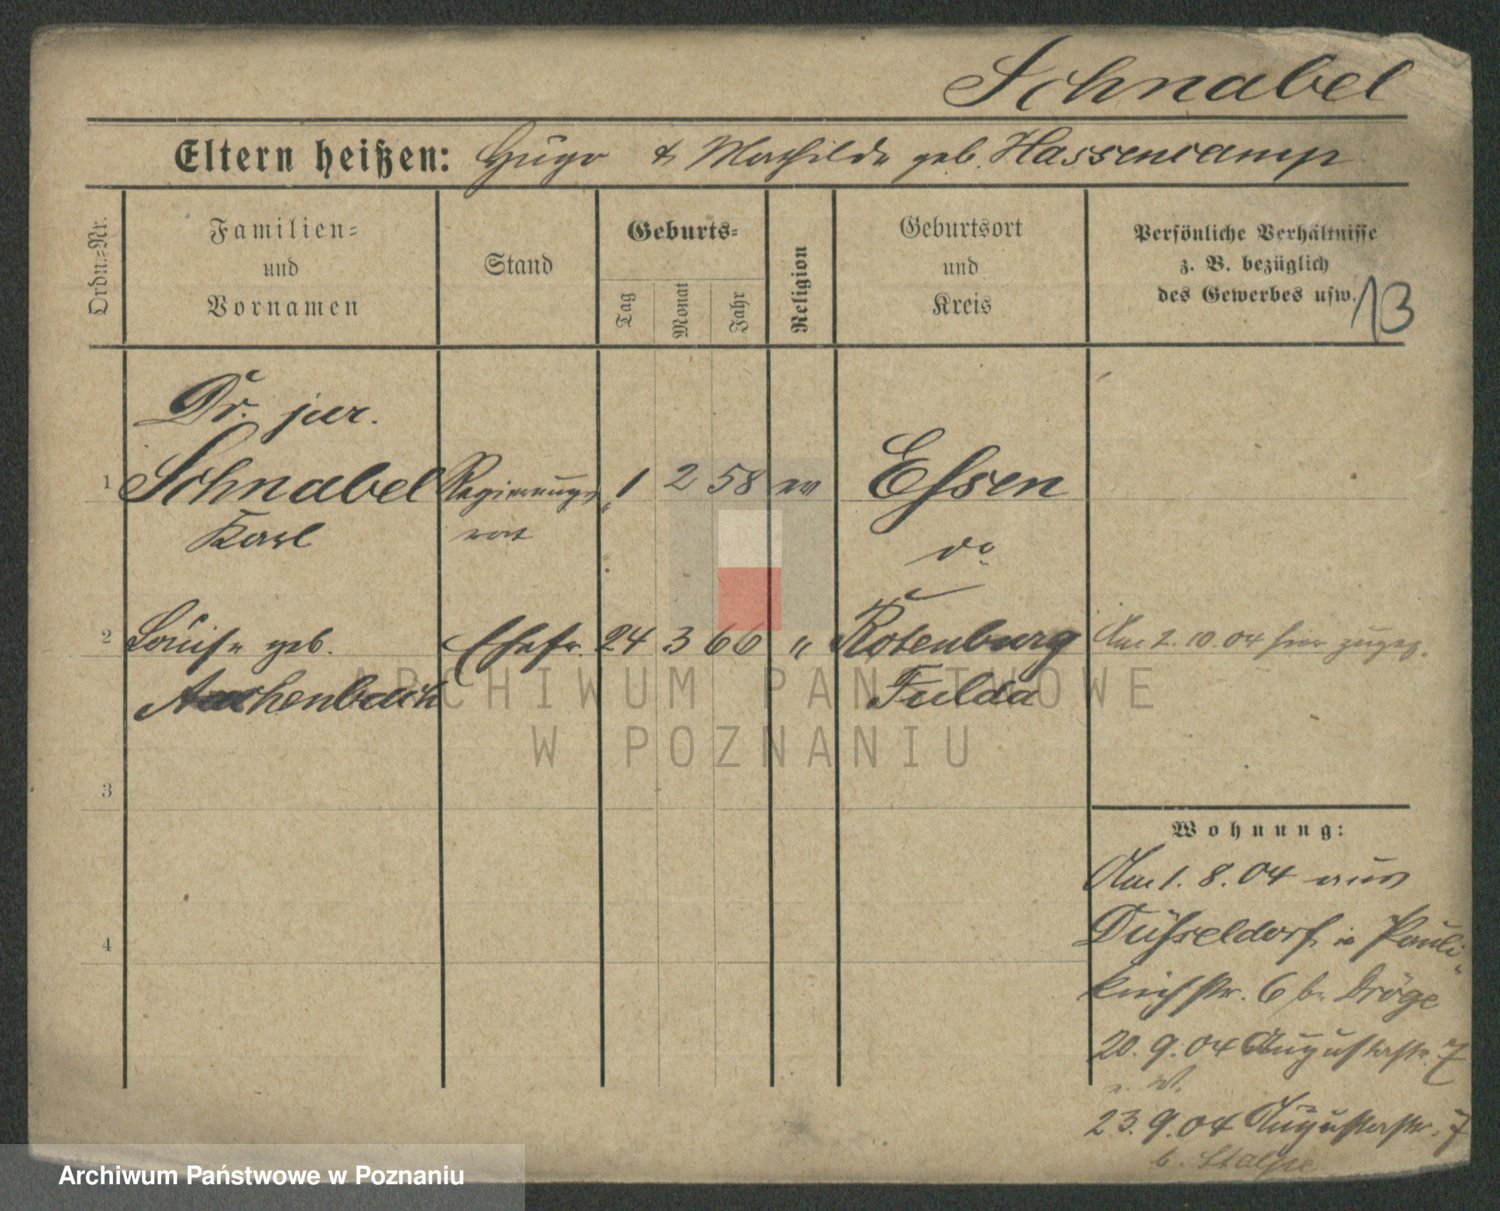 Schnabel
Eltern heißen: Hugo & Mathilde geb. Hassencamp
Ordn.=Nr.
Familien=
und
Vornamen
Stand
Geburts=
Tag
Monat
Jahr
Religion
Geburtsort
und
Kreis
Persönliche Verhältnisse
z. B. bezüglich
des Gewerbes usw.
13
Dr. jur.
1 Schnabel Regierungs 1 2 58 ev Essen
Karl rat do
2 Louise geb. Ehefr. 24 3 66 " Rotenburg Am 2. 10. 04 hier zugez.
Aschenbach Fulda
ARCHIWUM PAŃSTWOWE
W POZNANIU
3
Wohnung:
Am 1. 8. 04 aus
Düsseldorf Pauli
4
kirchstr. 6 b. Dröge
20. 9. 04 Augustastr. 7
23. 9. 04 Augustastr. 7
b.
Archiwum Państwowe w Poznaniu